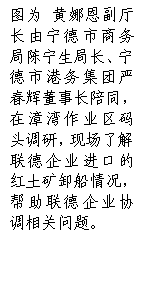 图为 黄娜恩副厅
长由宁德市商务
局陈宁生局长、宁
德市港务集团严
春辉董事长陪同，
在漳湾作业区码
头调研，现场了解
联德企业进口的
红土矿卸船情况，
帮助联德企业协
调相关问题。